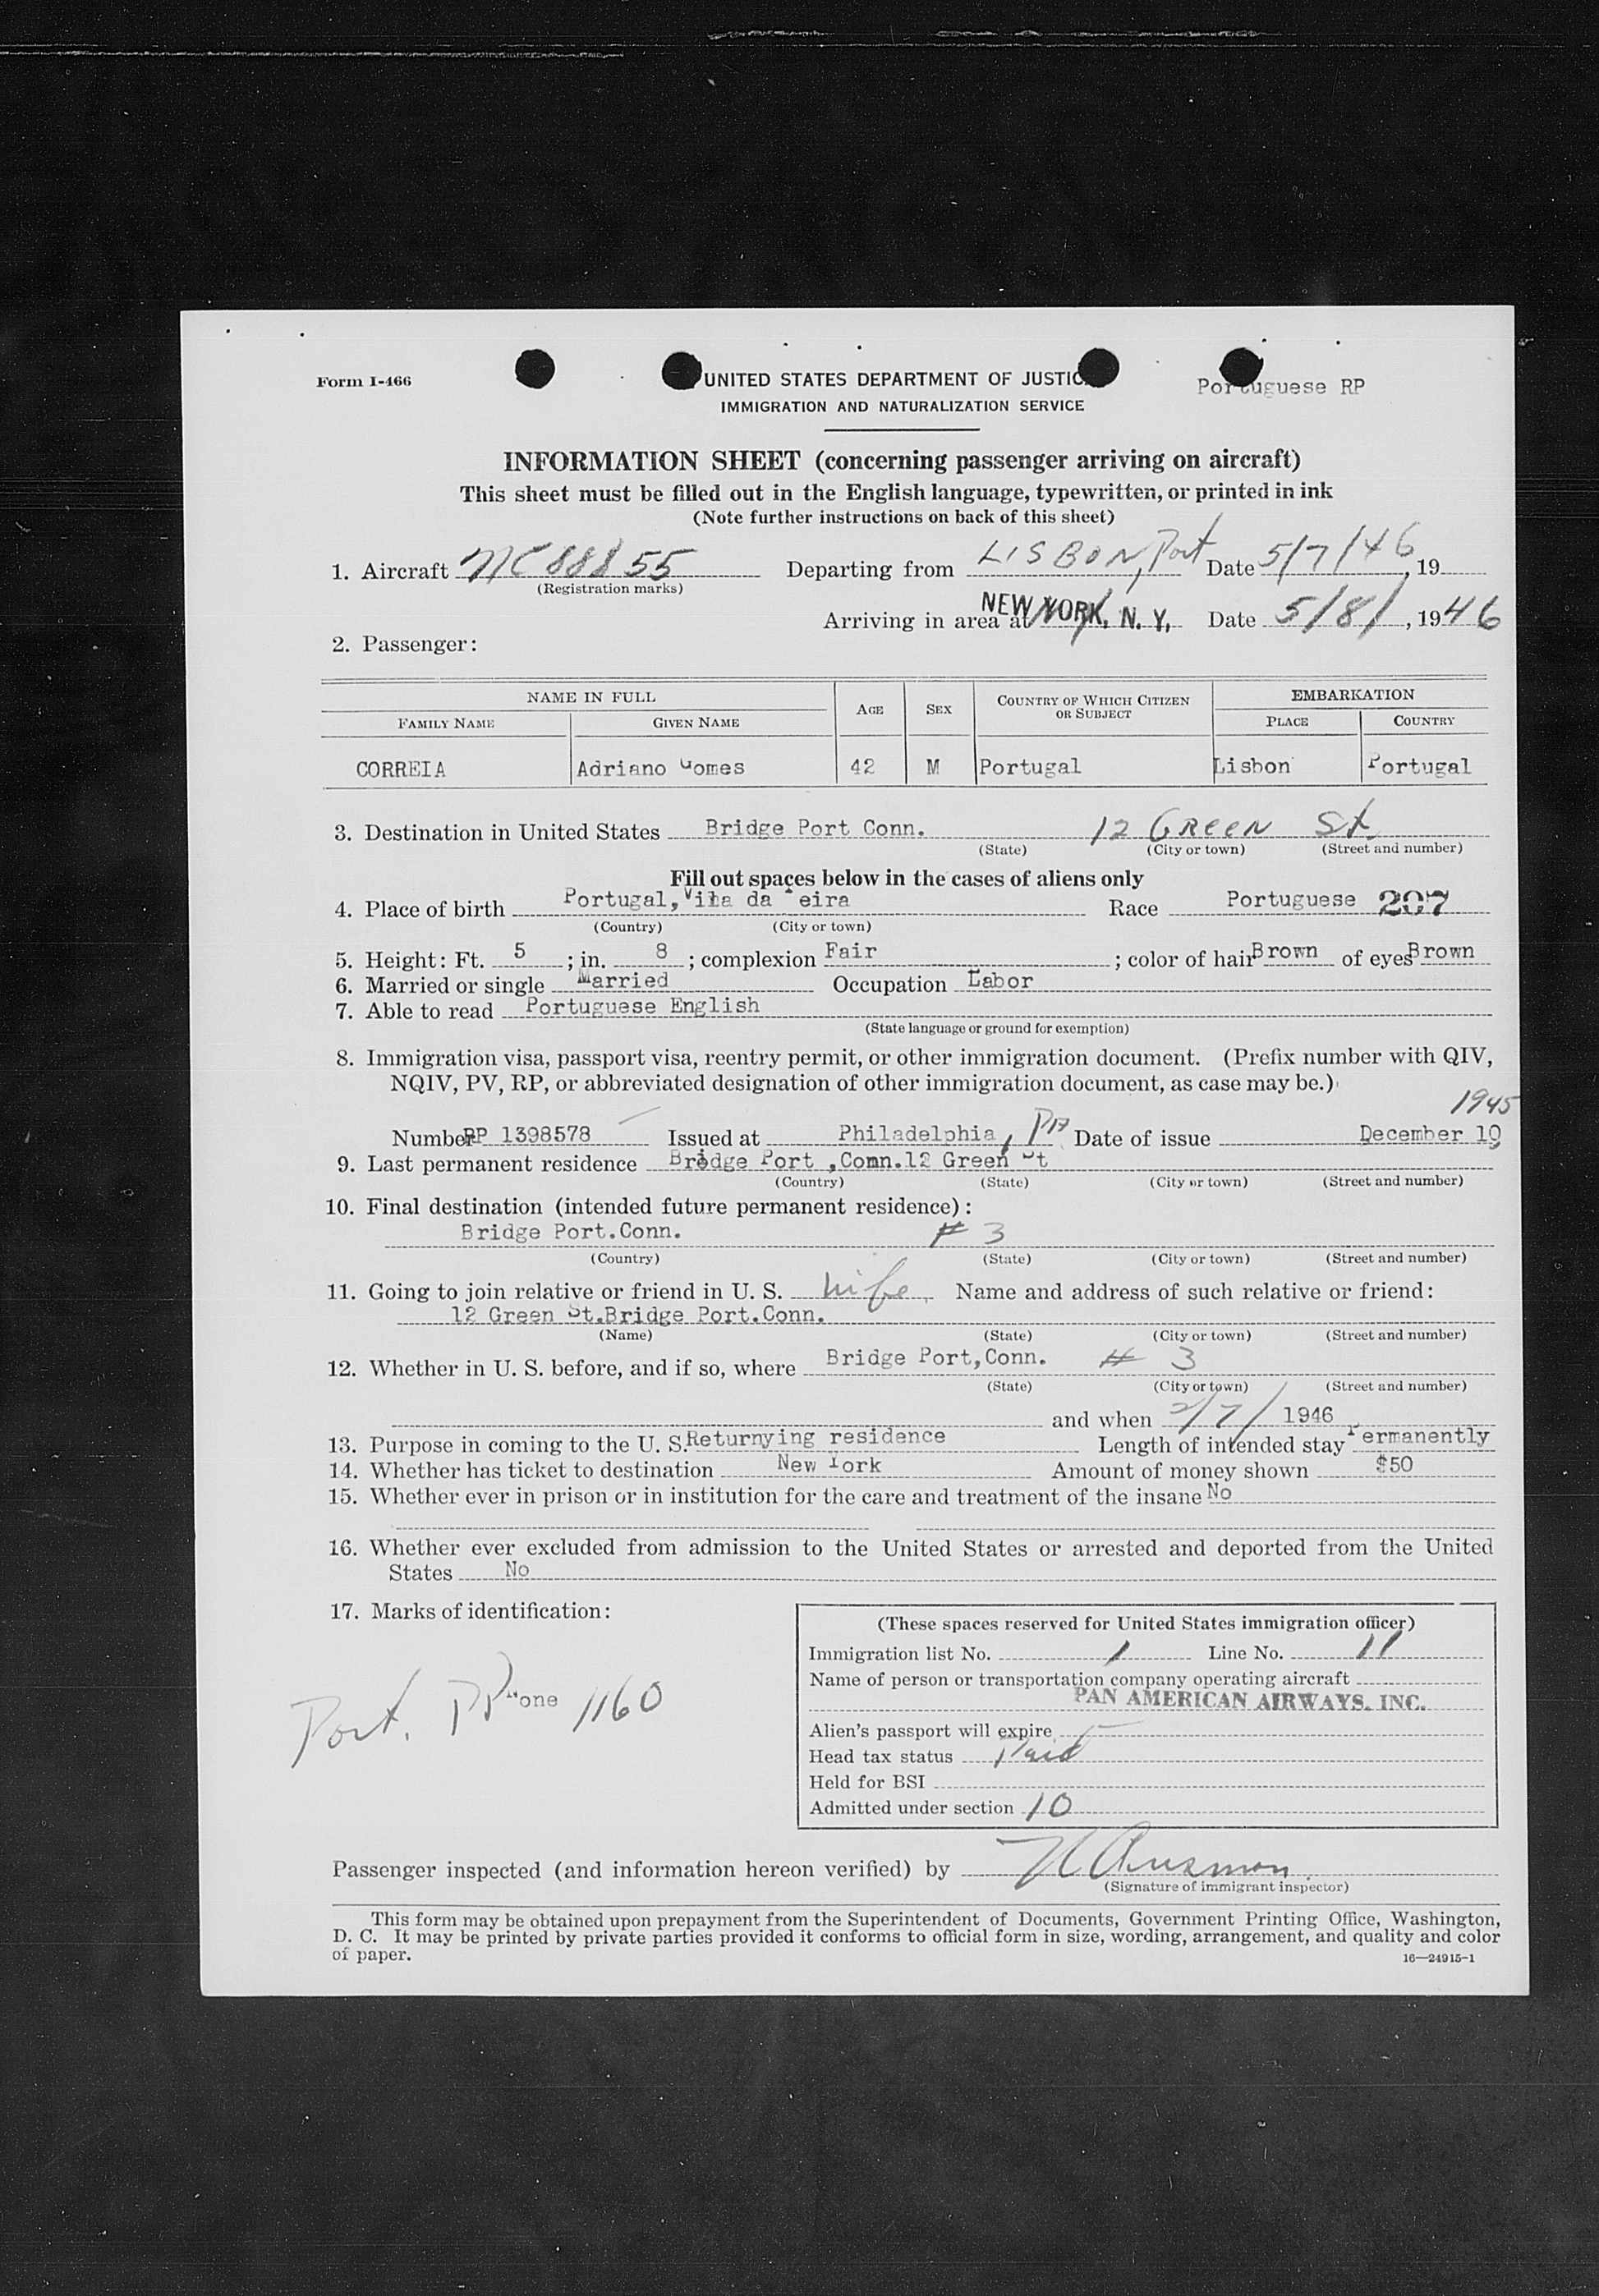 Form I-466
UNITED STATES DEPARTMENT OF JUSTIC
Portuguese RP
IMMIGRATION AND NATURALIZATION SERVICE
INFORMATION SHEET (concerning passenger arriving on aircraft)
This sheet must be filled out in the English language, typewritten, or printed in ink
(Note further instructions on back of this sheet)
1. Aircraft NC 88855 Departing from LISBON, Port Date 5/7/46, 19
(Registration marks)
Arriving in area at NEW YORK, N. Y. Date 5/8/, 1946
2. Passenger:
NAME IN FULL AGE SEX COUNTRY OF WHICH CITIZEN OR SUBJECT EMBARKATION
FAMILY NAME GIVEN NAME PLACE COUNTRY
CORREIA Adriano Gomes 42 M Portugal Lisbon Portugal
3. Destination in United States Bridge Port Conn. 12 GREEN St.
(State) (City or town) (Street and number)
Fill out spaces below in the cases of aliens only
4. Place of birth Portugal, Vila da eira Race Portuguese 207
(Country) (City or town)
5. Height: Ft. 5; in. 8; complexion Fair; color of hair Brown of eyes Brown
6. Married or single Married Occupation Labor
7. Able to read Portuguese English
(State language or ground for exemption)
8. Immigration visa, passport visa, reentry permit, or other immigration document. (Prefix number with QIV,
NQIV, PV, RP, or abbreviated designation of other immigration document, as case may be.)
1945
Number RP 1398578 Issued at Philadelphia, PA Date of issue December 10
9. Last permanent residence Bridge Port ,Conn.12 Green St
(Country) (State) (City or town) (Street and number)
10. Final destination (intended future permanent residence):
Bridge Port.Conn. # 3
(Country) (State) (City or town) (Street and number)
11. Going to join relative or friend in U. S. Wife Name and address of such relative or friend:
12 Green St.Bridge Port.Conn.
(Name) (State) (City or town) (Street and number)
12. Whether in U. S. before, and if so, where Bridge Port,Conn. # 3
(State) (City or town) (Street and number)
and when 2/7/ 1946
13. Purpose in coming to the U. S. Returnying residence Length of intended stay Permanently
14. Whether has ticket to destination New York Amount of money shown $50
15. Whether ever in prison or in institution for the care and treatment of the insane No
16. Whether ever excluded from admission to the United States or arrested and deported from the United
States No
17. Marks of identification:
Port. PP None 1160
(These spaces reserved for United States immigration officer)
Immigration list No. 1 Line No. 11
Name of person or transportation company operating aircraft
PAN AMERICAN AIRWAYS, INC.
Alien's passport will expire
Head tax status Paid
Held for BSI
Admitted under section 10
Passenger inspected (and information hereon verified) by
(Signature of immigrant inspector)
This form may be obtained upon prepayment from the Superintendent of Documents, Government Printing Office, Washington,
D. C. It may be printed by private parties provided it conforms to official form in size, wording, arrangement, and quality and color
of paper.
16—24915-1